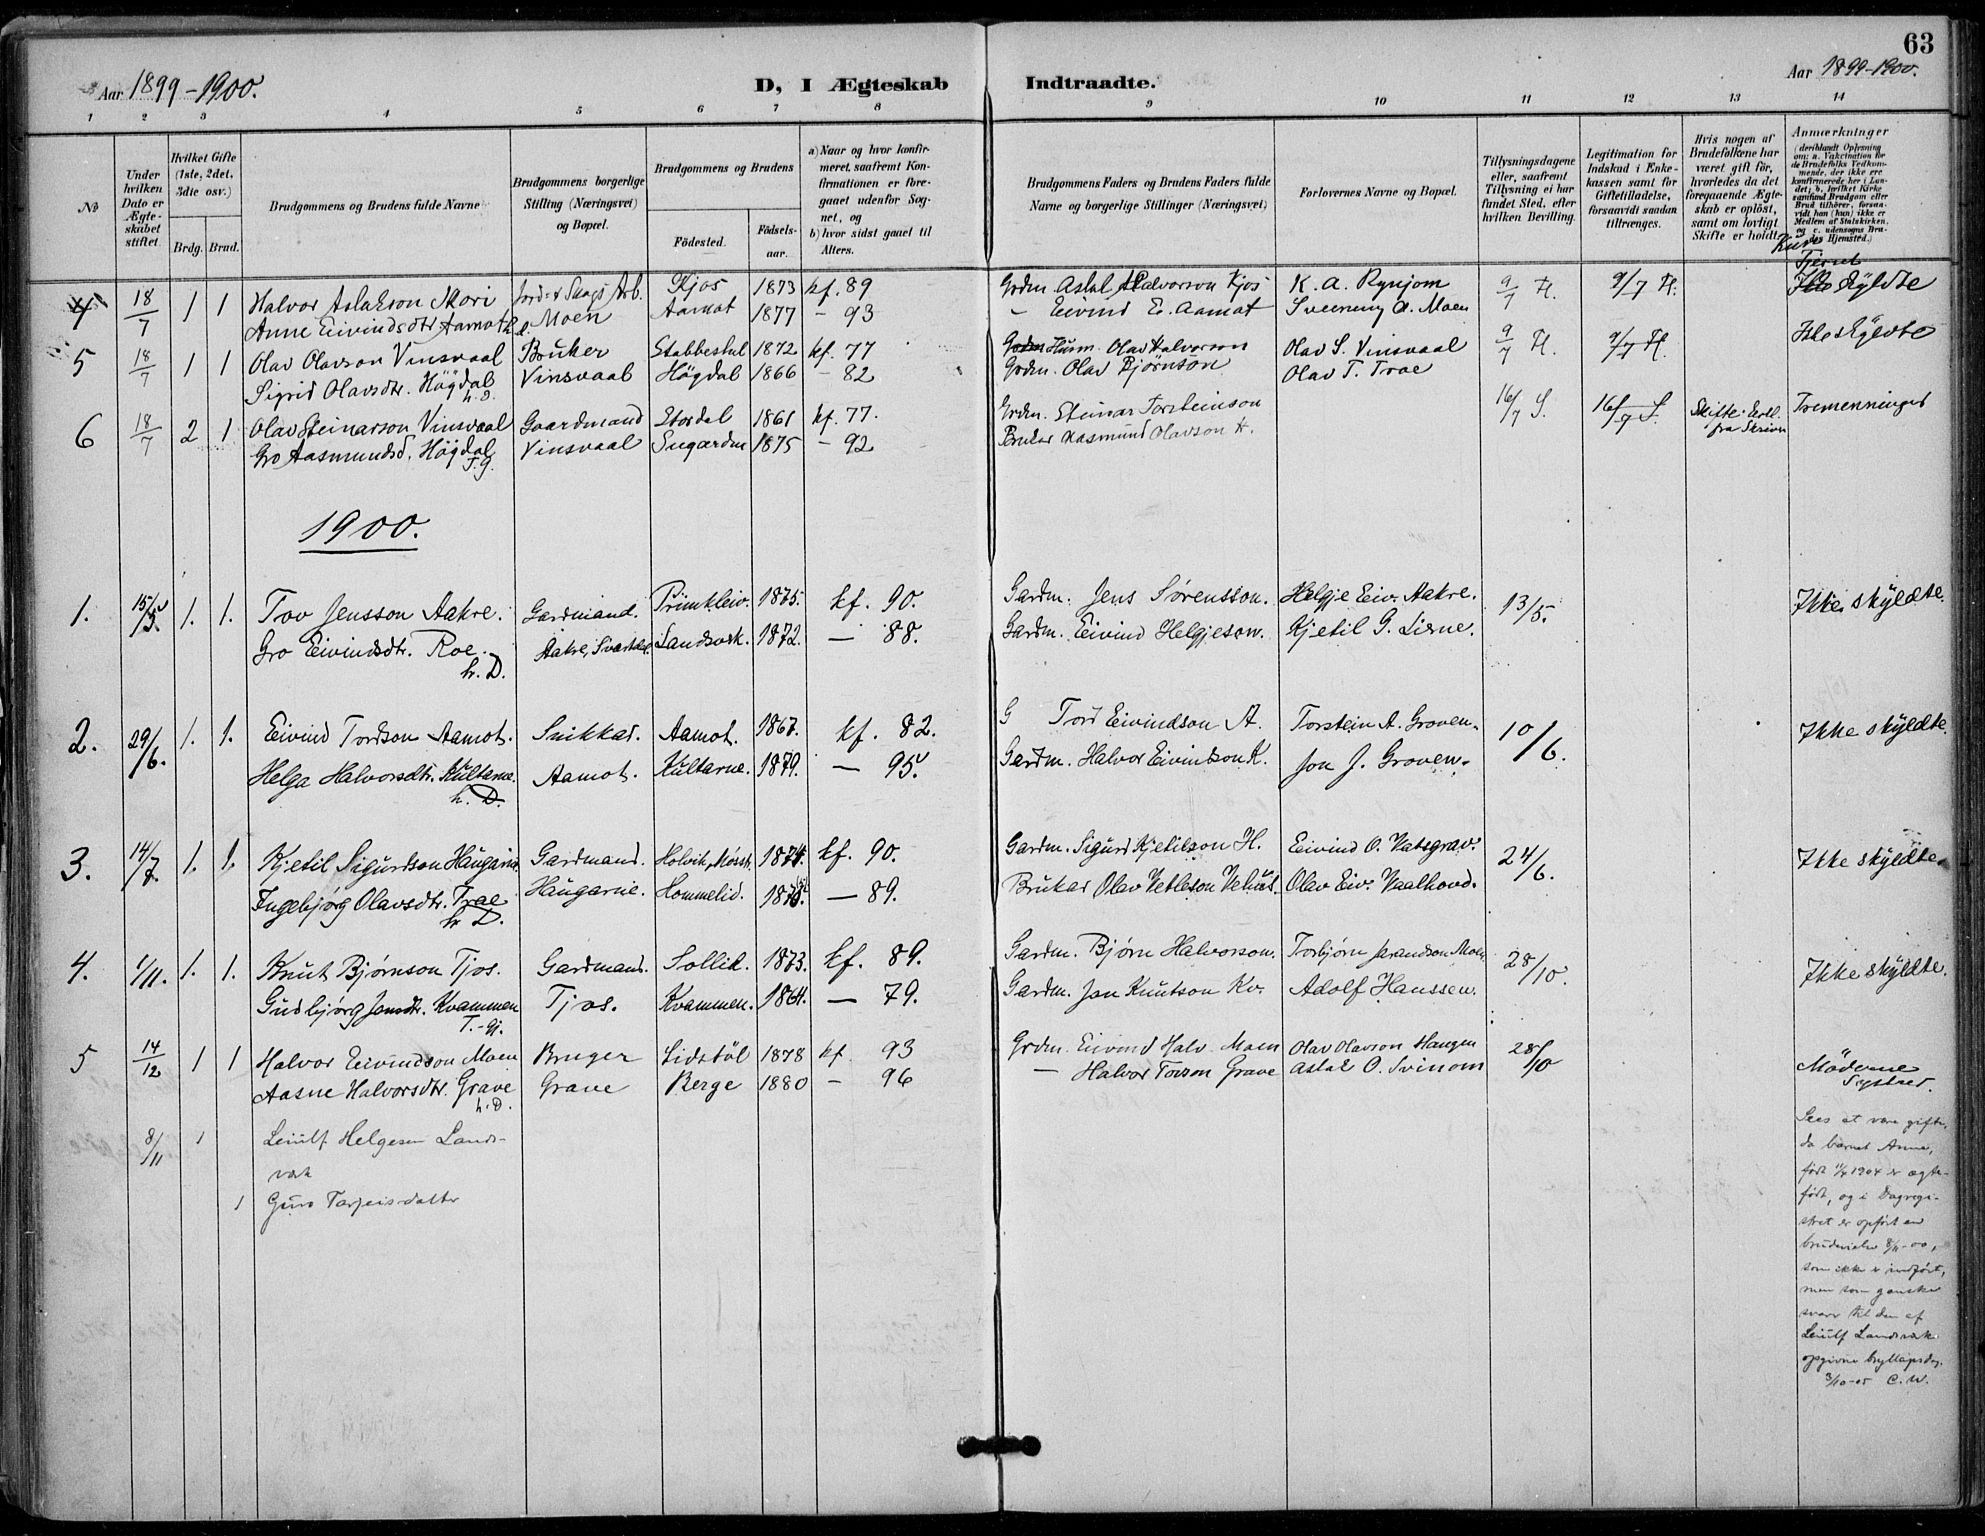 63
Aar 1899-1900.
D, I Ægteskab Indtraadte.
Aar 1899-1900.
1 2 3 4 5 6 7 8 9 10 11 12 13 14
№
Under hvilken Dato er Ægteskabet stiftet.
Hvilket Gifte (1ste, 2det, 3die osv.)
Brdg. Brud.
Brudgommens og Brudens fulde Navne
Brudgommens borgerlige Stilling (Næringsvei) og Bopæl.
Brudgommens og Brudens
Födested. Födselsaar.
a) Naar og hvor konfirmeret, saafremt Konfirmationen er foregaaet udenfor Sognet, og
b) hvor sidst gaaet til Alters.
Brudgommens Faders og Brudens Faders fulde Navne og borgerlige Stillinger (Næringsvei)
Forlovernes Navne og Bopæl.
Tillysningsdagene eller, saafremt Tillysning ei har fundet Sted, efter hvilken Bevilling.
Legitimation for Indskud i Enkekassen samt for Giftetilladelse, forsaavidt saadan tiltrænges.
Hvis nogen af Brudefolkene har været gift før, hvorledes da det foregaaende Ægteskab er oplöst, samt om lovligt Skifte er holdt.
Anmærkninger
(deriblandt Oplysning om: a. Vakcination for de Brudefolks Vedkommende, der ikke ere konfirmerede her i Landet; b. hvilket Kirkesamfund Brudgom eller Brud tilhører, forsaavidt han (hun) ikke er Medlem af Statskirken, og c. udensogns Brudes Hjemsted.)
4 18/7 1 1 Halvor Aslakson Mori Jord- & Skogs Arb. Kjos 1873 kf. 89 Grdm. Aslak Halvorson Kjos K. A. Rynjom 9/7 H. 9/7 H. Ikke skyldte
Anne Eivindsdtr Aamot h. d. Moen Aamot 1877 - 93 - Eivind E. Aamot Sveinung A. Moen
5 18/7 1 1 Olav Olavson Vinsvaal Bruker Stabbestul 1872 kf. 77 Husm. Olav Halvorson Olav S. Vinsvaal 9/7 H. 9/7 H. Ikke skyldte
Sigrid Olavsdtr. Högdal h. D. Vinsvaal Högdal 1866 - 82 Grdm. Olav Bjørnson Olav T. Trae
6 18/7 2 1 Olav Steinarson Vinsvaal Gaardmand Stordal 1861 kf. 77. Grdm. Steinar Torsteinson 16/7 S. 16/7 S. Skifte- Erkl. fra Skriveren Tremenninget
Gro Aasmundsd. Högdal T. G. Vinsvaal 1875 - 92 Bruker Aasmund Olavson H.
1900.
1. 15/5 1. 1. Tov Jensson Aakre. Gardmand. Primkleiv. 1875. kf. 90. Gardm. Jens Sørensson. Helgje Eiv. Aakre. 13/5. Ikke skyldte.
Gro Eivindsdtr. Roe. h. D. Aakre, Svartdal. Landsverk. 1872. - 88. Gardm. Eivind Helgjeson. Kjetil G. Lisne.
2. 29/6. 1. 1. Eivind Tordson Aamot. Snikkar. Aamot. 1867. kf. 82. G Tord Eivindson A. Torstein A. Groven. 10/6. Ikke skyldte.
Helga Halvorsdtr. Kultarne. h. D. Aamot. Kultarne. 1879. - 95. Gardm. Halvor Eivindson K. Jon J. Groven.
3. 14/7. 1. 1. Kjetil Sigurdson Haugarne Gardmand. Holvik, Møsstr. 1874. kf. 90. Gardm. Sigurd Kjetilson H. Eivind O. Vatsgrav. 24/6. Ikke skyldte.
Ingebjørg Olavsdtr. Traee h. D. Haugarne. Hommelid. - 89. Brukar Olav Vetleson Vehus. Olav Eiv. Vaalhovd.
4. 1/11. 1. 1. Knut Bjørnson Tjos. Gardmand. Sollid. 1873. kf. 89. Gardm. Bjørn Halvorson. Torbjørn Jarandson Moen 28/10. Ikke skyldte.
Gudbjørg Jonsdtr. Kvammen T.-Gj. Tjos. Kvammen. 1864. - 79. Gardm. Jon Knutson Kv. Adolf Hanssen.
5 14/12 1 1 Halvor Eivindson Moen Bruger Lidstöl 1878 kf. 93 Grdm. Eivind Halv. Moen Olav Olavson Haugen 28/10 Mödrene Systrer.
Aasne Halvorsdtr. Grave h. D. Grave Berge 1880 - 96 - Halvor Tovson Grave Aslak O. Svinom
8/11 1 Leiulf Helgesen Lands-
værk
1 Guro Tarjeisdatter
Sees at være gifte,
da barnet Anne,
født 1904 er ægte-
født, og i Dagregi-
stret er opført en
brudevielse 8/11-00,
som ikke er indført,
men som ganske
svarer til den af
Leiulf Landsværk
opgivne bryllupsdag.
3/10-05 C. W.